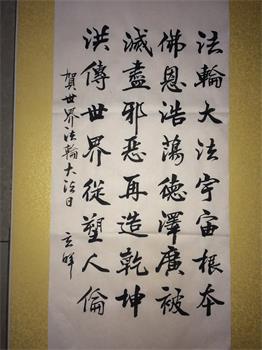 法輪大法宇宙根本
佛恩浩蕩德澤廣被
滅盡邪惡再造乾坤
洪傳世界從塑人倫
賀世界法輪大法日
玄暉